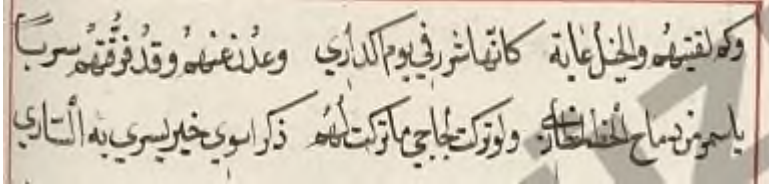 وكم لقيتهم والخيل غاية كأنها شرر في يوم الداري وعدن عنهم وقد فرقتهم سربا
باسمر من رماح الخط ولو تركت لجاجي ما تركت لهم ذكرا سوي خبر يسري به الساري